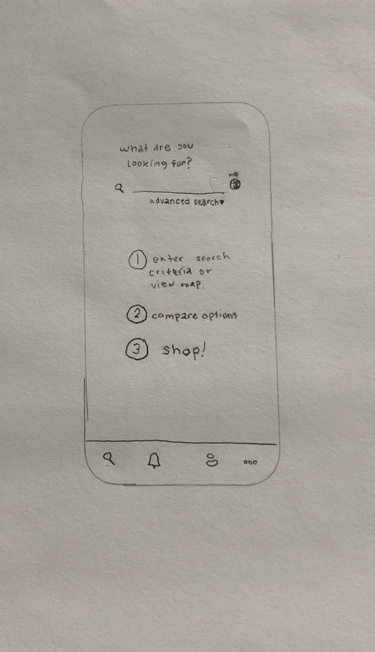 what are you
looking for?
map
advanced search▾
1 enter search
criteria or
view map.
2 compare options
3 shop!